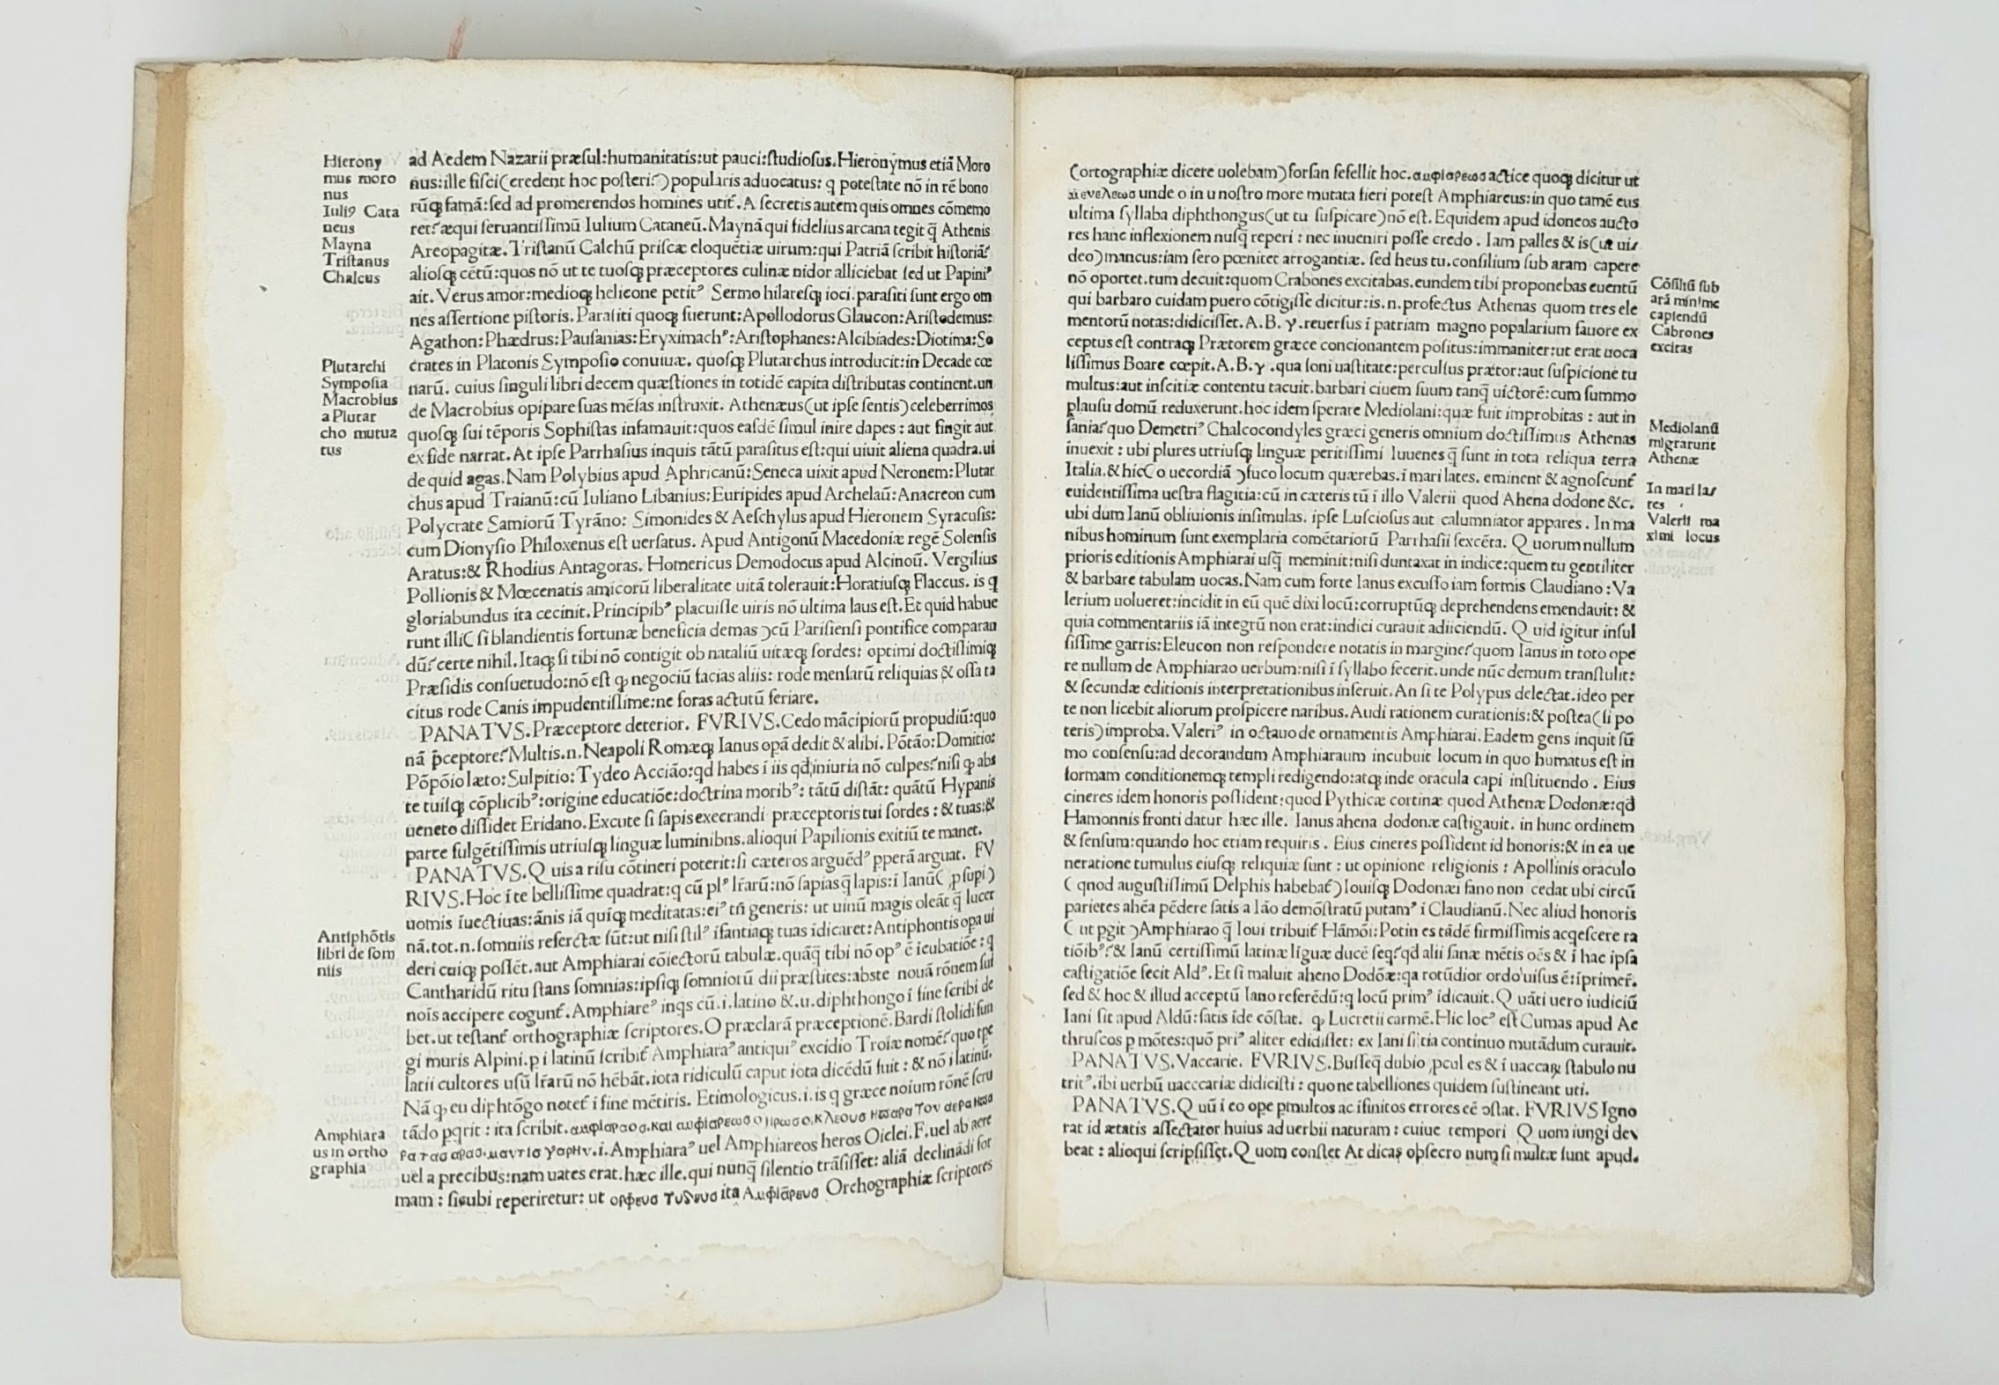 Hierony
mus moro
nus
Iuli9 Cata
neus
Mayna
Tristanus
Chalcus
Plutarchi
Symposia
Macrobius
a Plutar
cho mutua
tus
Antiphōtis
libri de som
niis
Amphiara
us in ortho
graphia
ad Aedem Nazarii præsul:humanitatis:ut pauci:studiosus.Hieronymus etiā Moro
nus:ille fisci(credent hoc posteri?)popularis aduocatus: q potestate nō in rē bono
rūq; famā: sed ad promerendos homines utit̄. A secretis autem quis omnes cōmemo
ret?æqui seruantissimū Iulium Cataneū. Maynā qui fidelius arcana tegit q̄ Athenis
Areopagitæ. Tristanū Calchū priscæ eloquētiæ uirum: qui Patriā scribit historiā?
aliosq; cētū: quos nō ut te tuosq; præceptores culinæ nidor alliciebat sed ut Papini’
ait. Verus amor: medioq; helicone petit’ Sermo hilaresq; ioci. parasiti sunt ergo om
nes assertione pistoris. Parasiti quoq; fuerunt: Apollodorus Glaucon: Aristodemus:
Agathon: Phædrus: Pausanias: Eryximach’: Aristophanes: Alcibiades: Diotima: So
crates in Platonis Symposio conuiuæ. quosq; Plutarchus introducit: in Decade cœ
narū. cuius singuli libri decem quæstiones in totidē capita distributas continent. un
de Macrobius opipare suas mēsas instruxit. Athenæus(ut ipse sentis)celeberrimos
quosq; sui tēporis Sophistas infamauit: quos easdē simul inire dapes: aut fingit aut
ex fide narrat. At ipse Parrhasius inquis tātū parasitus est: qui uiuit aliena quadra. ui
de quid agas. Nam Polybius apud Aphricanū: Seneca uixit apud Neronem: Plutar
chus apud Traianū: cū Iuliano Libanius: Euripides apud Archelaū: Anacreon cum
Polycrate Samiorū Tyrāno: Simonides & Aeschylus apud Hieronem Syracusis:
cum Dionysio Philoxenus est uersatus. Apud Antigonū Macedoniæ regē Solensis
Aratus: & Rhodius Antagoras. Homericus Demodocus apud Alcinoū. Vergilius
Pollionis & Mœcenatis amicorū liberalitate uitā tolerauit: Horatiusq; Flaccus. is q
gloriabundus ita cecinit. Principib’ placuisse uiris nō ultima laus est. Et quid habue
runt illi( si blandientis fortunæ beneficia demas )cū Parisiensi pontifice comparan
dū? certe nihil. Itaq; si tibi nō contigit ob nataliū uitæq; sordes: optimi doctissimiq;
Præsidis consuetudo: nō est q; negociū facias aliis: rode mensarū reliquias & ossa ta
citus rode Canis impudentissime: ne foras actutū feriare.
PANATVS. Præceptore deterior. FVRIVS. Cedo mācipiorū propudiū: quo
nā p̄ceptore? Multis. n. Neapoli Romæq; Ianus opā dedit & alibi. Pōtāo: Domitio:
Pōpōio læto: Sulpitio: Tydeo Acciāo: qd habes i iis qd, iniuria nō culpes? nisi q; abs
te tuisq; cōplicib’: origine educatiōe: doctrina morib’: tātū distāt: quātū Hypanis
ueneto dissidet Eridano. Excute si sapis execrandi præceptoris tui sordes: & tuas: &
parce fulgētissimis utriusq; linguæ luminibns. alioqui Papilionis exitiū te manet.
PANATVS. Quis a risu cōtineri poterit: si cæteros arguēd’ pperā arguat. FV
RIVS. Hoc i te bellissime quadrat: q cū pl’ lr̄arū: nō sapias q̄ lapis: i Ianū( , psupi)
uomis iuectiuas: ānis iā quiq; meditatas: ei’ tn̄ generis: ut uinū magis oleāt q̄ lucer
nā. tot. n. somniis refertæ sūt: ut nisi stil’ ifantiaq; tuas idicaret: Antiphontis opa ui
deri cuiq; possēt. aut Amphiarai cōiectorū tabulæ. quāq̄ tibi nō op’ ē icubatiōe: q
Cantharidū ritu stans somnias: ipsiq; somniorū dii præstites: abste nouā rōnem sui
nois accipere cogunt̄. Amphiare’ inqs cū. i. latino &. u. diphthongo i fine scribi de
bet. ut testant̄ orthographiæ scriptores. O præclarā præceptionē. Bardi stolidi fun
gi muris Alpini. p i latinū scribit̄ Amphiara’ antiqui’ excidio Troiæ nomē? quo tpe
latii cultores usū lr̄arū nō hēbāt. iota ridiculū caput iota dicēdū fuit: & nō i latinū.
Nā q; eu diphtōgo notet̄ i fine mētiris. Etimologicus. i. is q græce noium rōnē scru
tādo pqrit: ita scribit. αμφιαραοσ. και αμφιαρεωσ ο ηρωσ ο. κλεουσ
i. Amphiara’ uel Amphiareos heros Oiclei. F. uel ab aere
uel a precibus: nam uates erat. hæc ille. qui nunq̄ silentio trāsisset: aliā declinādi for
mam: sicubi reperiretur: ut ορφευσ τυδευσ ita Αμφιαρευσ Orchographiæ scriptores
(ortographiæ dicere uolebam) forsan fefellit hoc. αμφιαρεωσ actice quoq; dicitur ut
μενελεωσ unde o in u nostro more mutata fieri potest Amphiareus: in quo tamē eus
ultima syllaba diphthongus(ut tu suspicare)nō est. Equidem apud idoneos aucto
res hanc inflexionem nusq̄ reperi: nec inueniri posse credo. Iam palles & is(ut ui
deo)mancus: iam sero pœnitet arrogantiæ. sed heus tu. consilium sub aram capere
nō oportet. tum decuit: quom Crabones excitabas. eundem tibi proponebas euentū
qui barbaro cuidam puero cōtigisse dicitur: is. n. profectus Athenas quom tres ele
mentorū notas: didicisset. A. B. γ. reuersus i patriam magno popularium fauore ex
ceptus est contraq; Prætorem græce concionantem positus: immaniter: ut erat uoca
lissimus Boare cœpit. A. B. γ. qua soni uastitate: percussus prætor: aut suspicione tu
multus: aut inscitiæ contentu tacuit. barbari ciuem suum tanq̄ uictorē: cum summo
plausu domū reduxerunt. hoc idem sperare Mediolani: quæ fuit improbitas: aut in
sania? quo Demetri’ Chalcocondyles græci generis omnium doctissimus Athenas
inuexit: ubi plures utriusq; linguæ peritissimi Iuuenes q̄ sunt in tota reliqua terra
Italia. & hic( o uecordiā )fuco locum quærebas. i mari lates. eminent & agnoscunt̄
euidentissima uestra flagitia: cū in cæteris tū i illo Valerii quod Ahena dodone &c.
ubi dum Ianū obliuionis insimulas. ipse Lusciosus aut calumniator appares. In ma
nibus hominum sunt exemplaria comētariorū Parrhasii sexcēta. Quorum nullum
prioris editionis Amphiarai usq̄ meminit: nisi duntaxat in indice: quem tu gentiliter
& barbare tabulam uocas. Nam cum forte Ianus excusso iam formis Claudiano: Va
lerium uolueret: incidit in eū quē dixi locū: corruptūq; deprehendens emendauit: &
quia commentariis iā integrū non erat: indici curauit adiiciendū. Quid igitur insul
sissime garris: Eleucon non respondere notatis in margine? quom Ianus in toto ope
re nullum de Amphiarao uerbum: nisi i syllabo fecerit. unde nūc demum transtulit:
& secundæ editionis interpretationibus inseruit. An si te Polypus delectat. ideo per
te non licebit aliorum prospicere naribus. Audi rationem curationis: & postea(si po
teris)improba. Valeri’ in octauo de ornamentis Amphiarai. Eadem gens inquit sū
mo consensu: ad decorandum Amphiaraum incubuit locum in quo humatus est in
formam conditionemq; templi redigendo: atq; inde oracula capi instituendo. Eius
cineres idem honoris possident: quod Pythicæ cortinæ quod Athenæ Dodonæ: qd
Hamonnis fronti datur hæc ille. Ianus ahena dodonæ castigauit. in hunc ordinem
& sensum: quando hoc etiam requiris. Eius cineres possident id honoris: & in ea ue
neratione tumulus eiusq; reliquiæ sunt: ut opinione religionis: Apollinis oraculo
( qnod augustissimū Delphis habebat̄)Iouisq; Dodonæi fano non cedat ubi circū
parietes ahēa pēdere satis a Iāo demōstratū putam’ i Claudianū. Nec aliud honoris
( ut pgit )Amphiarao q̄ Ioui tribuit̄ Hāmōi: Potin es tādē firmissimis acqescere ra
tiōib’? & Ianū certissimū latinæ liguæ ducē seq? qd alii sanæ mētis oēs & i hac ipsa
castigatiōe fecit Ald’. Et si maluit aheno Dodōæ: qa rotūdior ordo uisus ē: iprimer̄.
sed & hoc & illud acceptū Iano referēdū: q locū prim’ idicauit. Quāti uero iudiciū
Iani sit apud Aldū: satis ide cōstat. q; Lucretii carmē. Hic loc’ est Cumas apud Ae
thruscos p mōtes: quō pri’ aliter edidisset: ex Iani sitia continuo mutādum curauit.
PANATVS. Vaccarie. FVRIVS. Busseq̄ dubio , pcul es & i uaccaꝝ stabulo nu
trit’. ibi uerbū uacccariæ didicisti: quo ne tabelliones quidem sustineant uti.
PANATVS. Quū i eo ope pmultos ac ifinitos errores eē ɔstat. FVRIVS Igno
rat id ætatis affectator huius aduerbii naturam: cuiue tempori Quom iungi de
beat: alioqui scripsisset. Quom constet At dicas obsecro num si multæ sunt apud.
Cōsiliū sub
arā minime
capiendū
Cabrones
excitas
Mediolanū
migrarunt
Athenæ
In mari la
res
Valerii ma
ximi locus